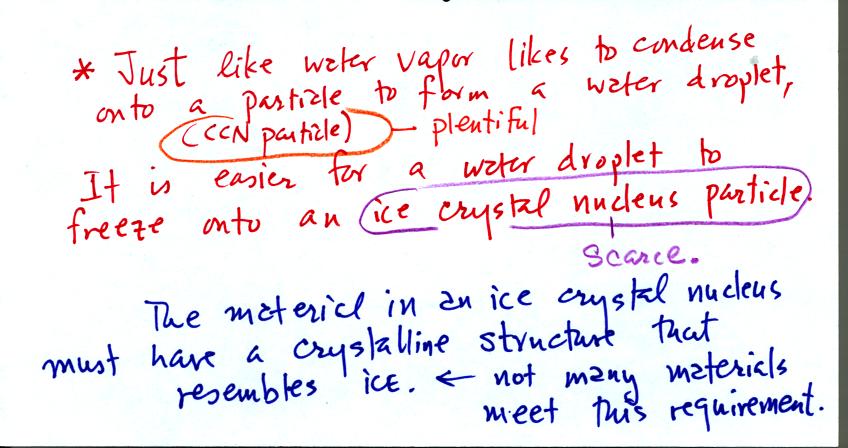 * Just like water vapor likes to condense
onto a particle to form a water droplet,
(CCN particle) — plentiful
It is easier for a water droplet to
freeze onto an ice crystal nucleus particle.
Scarce.
The material in an ice crystal nucleus
must have a crystalline structure that
resembles ice. ← not many materials
meet this requirement.